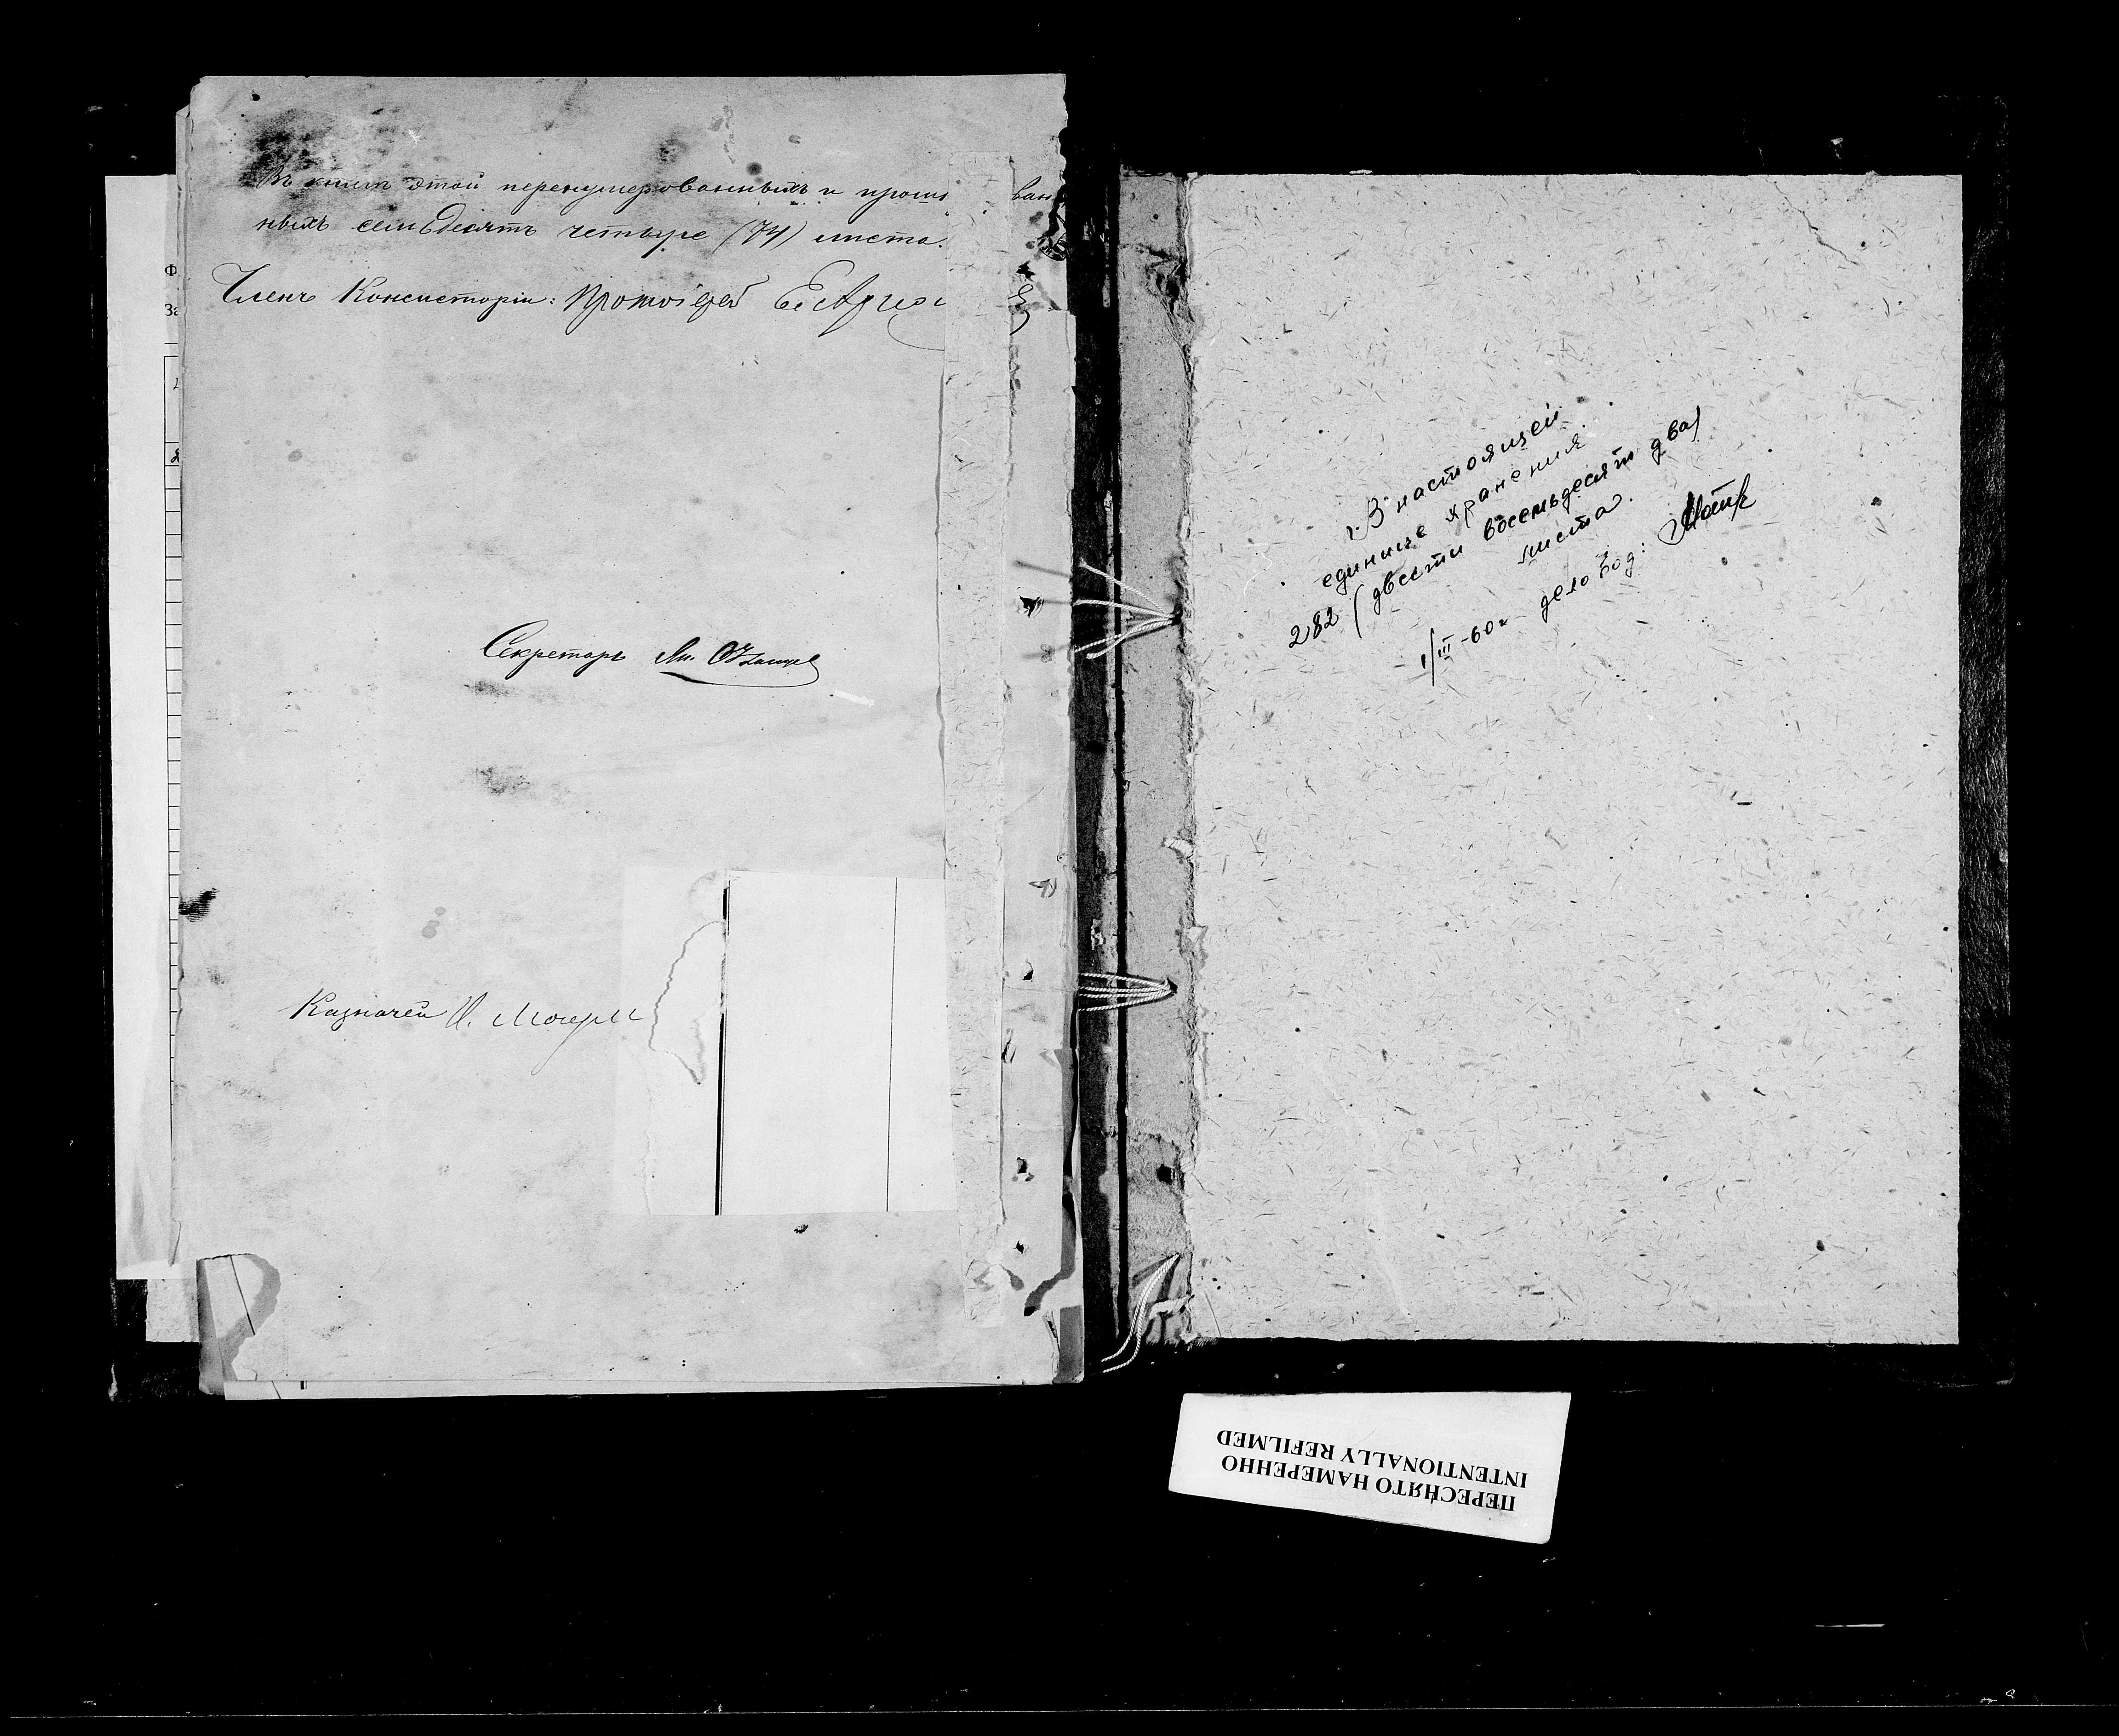 Въ книгѣ этой перенумерованныхъ и прошн ван
ныхъ семьдесятъ четыре (74) листа.
Членъ Консисторіи: Протоіерей
Секретарь
Казначей И.
В настоящей
единице хранения
282 (двести восемьдесят два)
листа.
1/III-60г делопод:
ПЕРЕСНЯТО НАМЕРЕННО
INTENTIONALLY REFILMED